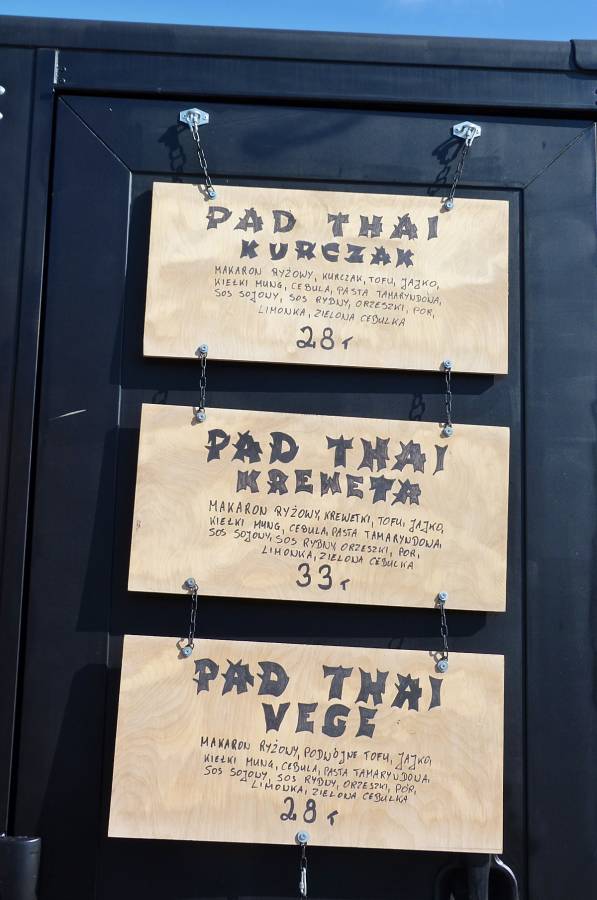 PAD THAI
KURCZAK
MAKARON RYŻOWY, KURCZAK, TOFU, JAJKO,
KIEŁKI MUNG, CEBULA, PASTA TAMARYNDOWA,
SOS SOJOWY, SOS RYBNY, ORZESZKI, POR,
LIMONKA, ZIELONA CEBULKA
28,-
PAD THAI
KREWETA
MAKARON RYŻOWY, KREWETKI, TOFU, JAJKO,
KIEŁKI MUNG, CEBULA, PASTA TAMARYNDOWA,
SOS SOJOWY, SOS RYBNY, ORZESZKI, POR,
LIMONKA, ZIELONA CEBULKA
33,-
PAD THAI
VEGE
MAKARON RYŻOWY, PODWÓJNE TOFU, JAJKO,
KIEŁKI MUNG, CEBULA, PASTA TAMARYNDOWA,
SOS SOJOWY, SOS RYBNY, ORZESZKI, POR,
LIMONKA, ZIELONA CEBULKA
28,-